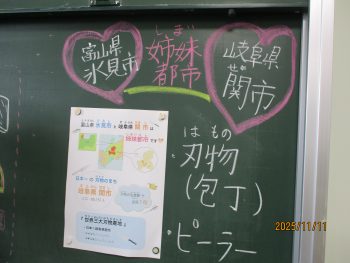 富山県
氷見市
しまい
姉妹
都市
岐阜県
せき
関市
はもの
・刃物
(包丁)
・ピーラー
富山県 氷見市 と 岐阜県 関市 は
姉妹都市 です
日本一の 刃物のまち
岐阜県 関市
『世界三大刃物産地』
2025/11/11